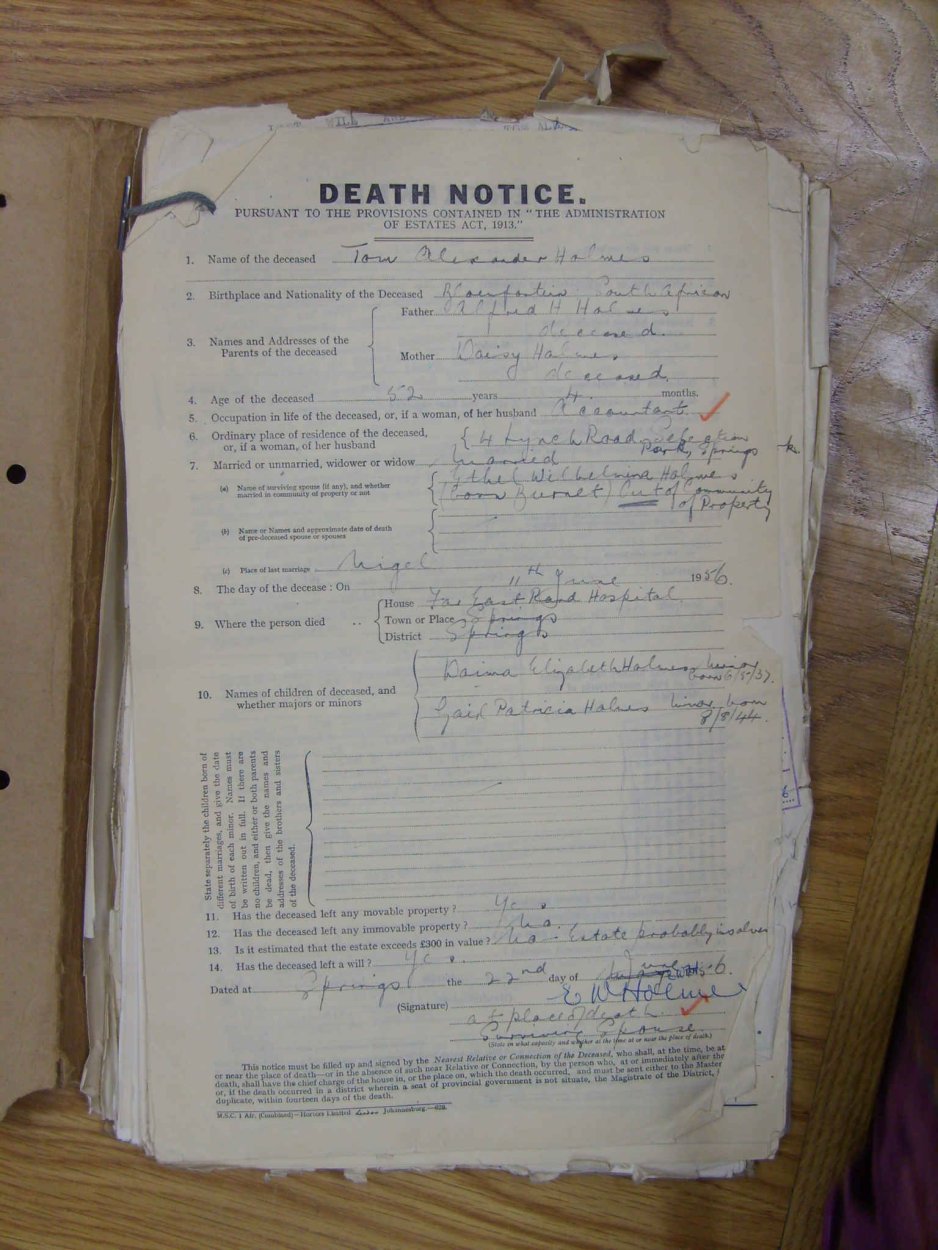 WILL AND
DEATH NOTICE.
PURSUANT TO THE PROVISIONS CONTAINED IN "THE ADMINISTRATION
OF ESTATES ACT, 1913."
1. Name of the deceased Tom Alexander Holmes
2. Birthplace and Nationality of the Deceased Bloemfontein South African
3. Names and Addresses of the Parents of the deceased
Father Alfred H Holmes
deceased.
Mother Daisy Holmes
deceased
4. Age of the deceased 52 years 4 months.
5. Occupation in life of the deceased, or, if a woman, of her husband Accountant
6. Ordinary place of residence of the deceased, or, if a woman, of her husband
4 Lynch Road, Selection
Park, Springs
7. Married or unmarried, widower or widow Married
(a) Name of surviving spouse (if any), and whether married in community of property or not
Ethel Wilhelmina Holmes
(born Burnet) Out of Community
of Property
(b) Name or Names and approximate date of death of pre-deceased spouse or spouses
(c) Place of last marriage Nigel
8. The day of the decease : On 11th June 1956.
9. Where the person died ..
House Far East Rand Hospital
Town or Place Springs
District Springs
10. Names of children of deceased, and whether majors or minors
Elizabeth Holmes minor
born 6/5/37.
Gail Patricia Holmes minor born
8/8/44.
State separately the children born of
different marriages, and give the date
of birth of each minor. Names must
be written out in full. If there are
no children, and either or both parents
be dead, then give the names and
addresses of the brothers and sisters
of the deceased.
11. Has the deceased left any movable property? Yes.
12. Has the deceased left any immovable property? No.
13. Is it estimated that the estate exceeds £300 in value? No - Estate probably insolvent
14. Has the deceased left a will? Yes.
Dated at Springs the 22nd day of June 56.
(Signature) E W Holmes
at place of death.
Surviving Spouse.
(State in what capacity and whether at the time at or near the place of death.)
This notice must be filled up and signed by the Nearest Relative or Connection of the Deceased, who shall, at the time, be at
or near the place of death—or in the absence of such near Relative or Connection, by the person who, at or immediately after the
death, shall have the chief charge of the house in, or the place on, which the death occurred, and must be sent either to the Master
or, if the death occurred in a district wherein a seat of provincial government is not situate, the Magistrate of the District, in
duplicate, within fourteen days of the death.
M.S.C. 1 Afr. (Combined)—Hortors Limited Johannesburg.